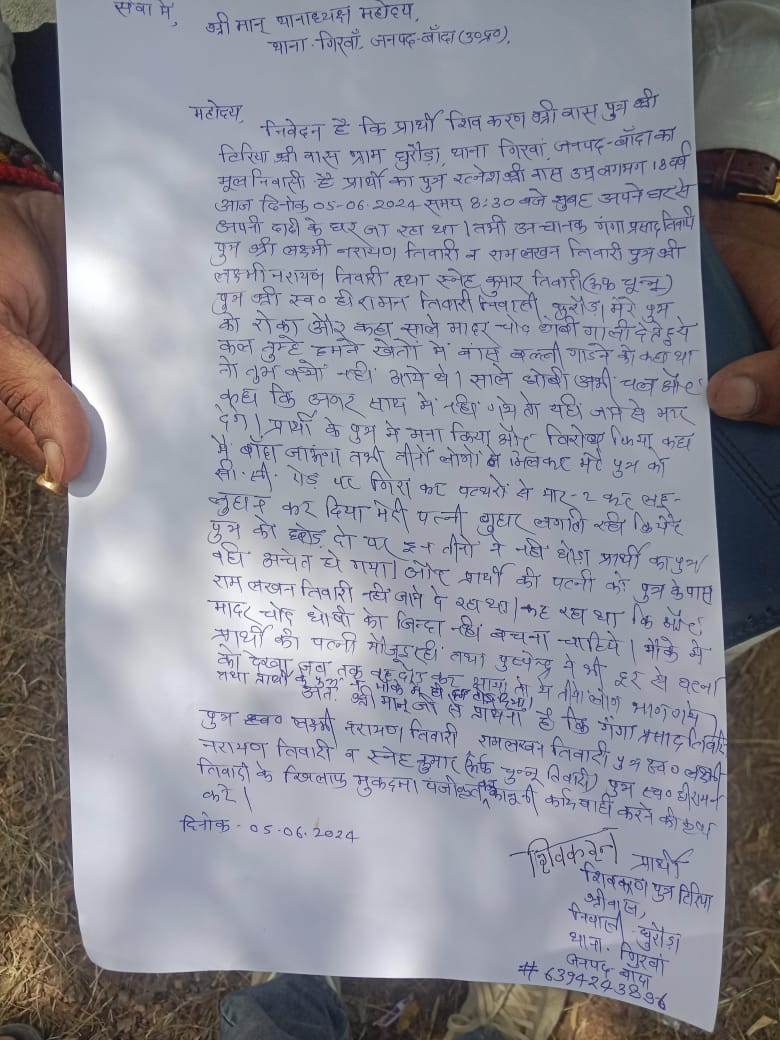 सेवा में,
श्री मान् थानाध्यक्ष महोदय,
थाना-गिरवाँ, जनपद-बाँदा (उ०प्र०),
महोदय,
निवेदन है कि प्रार्थी शिव करण श्री वास पुत्र श्री
टिरिया श्री वास ग्राम घुरौड़ा, थाना गिरवां, जनपद-बाँदा का
मूल निवासी है प्रार्थी का पुत्र रत्नेश श्री वास उम्र लगभग 18 वर्ष
आज दिनांक 05-06-2024 समय 8:30 बजे सुबह अपने घर से
अपनी दादी के घर जा रहा था। तभी अचानक गंगा प्रसाद तिवारी
पुत्र श्री लक्ष्मी नरायण तिवारी व राम लखन तिवारी पुत्र श्री
लक्ष्मी नरायण तिवारी तथा स्नेह कुमार तिवारी (उर्फ चुन्नू)
पुत्र श्री स्व० हीरामन तिवारी निवासी घुरौड़ा मेरे पुत्र
को रोका और कहा साले मादर चोद धोबी गाली देते हुये
कल तुम्हे हमने खेतों में बांस बल्ली गाडने को कहा था
तो तुम क्यों नहीं आये थे। साले धोबी अभी चल और
कहा कि अगर साथ में नहीं गये तो यहीं जान से मार
देंगे। प्रार्थी के पुत्र ने मना किया और विरोध किया कहा
मैं बाँदा जाऊंगा तभी तीनों लोगों ने मिलकर मेरे पुत्र को
सी.सी. रोड पर गिरा कर पत्थरों से मार-2 कर लहू-
लुहान कर दिया मेरी पत्नी गुहार लगाती रही कि मेरे
पुत्र को छोड़ दो पर इन तीनों ने नहीं छोड़ा प्रार्थी का पुत्र
वहीं अचेत हो गया। और प्रार्थी की पत्नी को पुत्र के पास
राम लखन तिवारी नहीं जाने दे रहा था। कह रहा था कि
मादर चोद धोबी को जिन्दा नहीं बचना चाहिये। मौके में
प्रार्थी की पत्नी मौजूद रही तथा पुष्पेन्द्र ने भी दूर से घटना
को देखा जब तक वह दौड़ कर आया तो ये तीनों लोग भाग गये।
तथा प्रार्थी के
अतः श्री मान् जी से प्रार्थना है कि गंगा प्रसाद तिवारी
पुत्र स्व० लक्ष्मी नरायण तिवारी रामलखन तिवारी पुत्र स्व० लक्ष्मी
नरायण तिवारी व स्नेह कुमार (उर्फ चुन्नू तिवारी) पुत्र स्व० हीरामन
तिवारी के खिलाफ मुकदमा पंजीकृत कर कानूनी कार्यवाही करने की कृपा
करें।
दिनांक-05.06.2024
शिवकरन
प्रार्थी
शिवकरण पुत्र टिरिया
श्रीवास,
निवासी-घुरौड़ा
थाना. गिरवां
जनपद बाँदा
# 6394243896